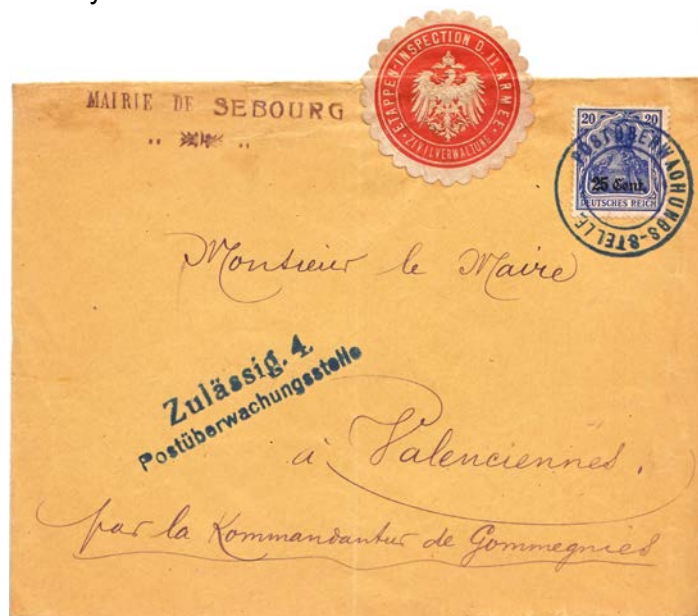 MAIRIE DE SEBOURG
ETAPPEN-INSPECTION D. II. ARMEE
ZIVILVERWALTUNG
20 20
25 Cent.
DEUTSCHES REICH
POSTÜBERWACHUNGS-STELLE
Monsieur le Maire
Zulässig. 4.
Postüberwachungsstelle
à Valenciennes.
par la Kommandantur de Gommegnies